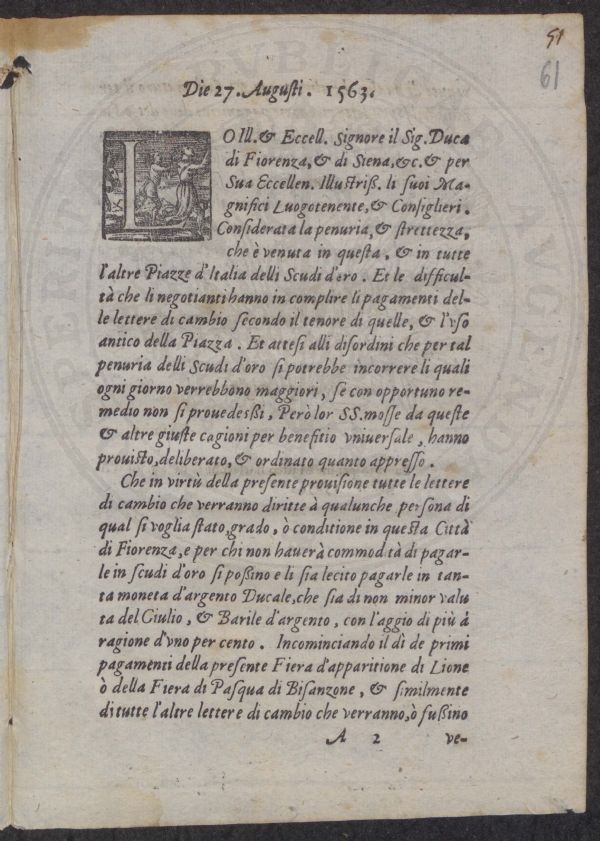 51
61
Die 27. Augusti. 1563.
LO Ill. & Eccell. Signore il Sig. Duca
di Fiorenza, & di Siena, &c. & per
Sua Eccellen. Illustriß. li suoi Ma-
gnifici Luogotenente, & Consiglieri.
Considerata la penuria, & strettezza,
che è venuta in questa, & in tutte
l'altre Piazze d'Italia delli Scudi d'oro. Et le difficul-
tà che li negotianti hanno in complire li pagamenti del-
le lettere di cambio secondo il tenore di quelle, & l'vso
antico della Piazza. Et attesi alli disordini che per tal
penuria delli Scudi d'oro si potrebbe incorrere li quali
ogni giorno verrebbono maggiori, se con opportuno re-
medio non si prouedesßi, Però lor SS. mosse da queste
& altre giuste cagioni per benefitio vniuersale, hanno
prouisto, deliberato, & ordinato quanto appresso.
Che in virtù della presente prouisione tutte le lettere
di cambio che verranno diritte à qualunche persona di
qual si voglia stato, grado, ò conditione in questa Città
di Fiorenza, e per chi non hauerà commodità di pagar-
le in scudi d'oro si poßino e li sia lecito pagarle in tan-
ta moneta d'argento Ducale, che sia di non minor valu
ta del Giulio, & Barile d'argento, con l'aggio di più à
ragione d'vno per cento. Incominciando il dì de primi
pagamenti della presente Fiera d'apparitione di Lione
ò della Fiera di Pasqua di Bisanzone, & similmente
di tutte l'altre lettere di cambio che verranno, ò fußino
A 2 ve-